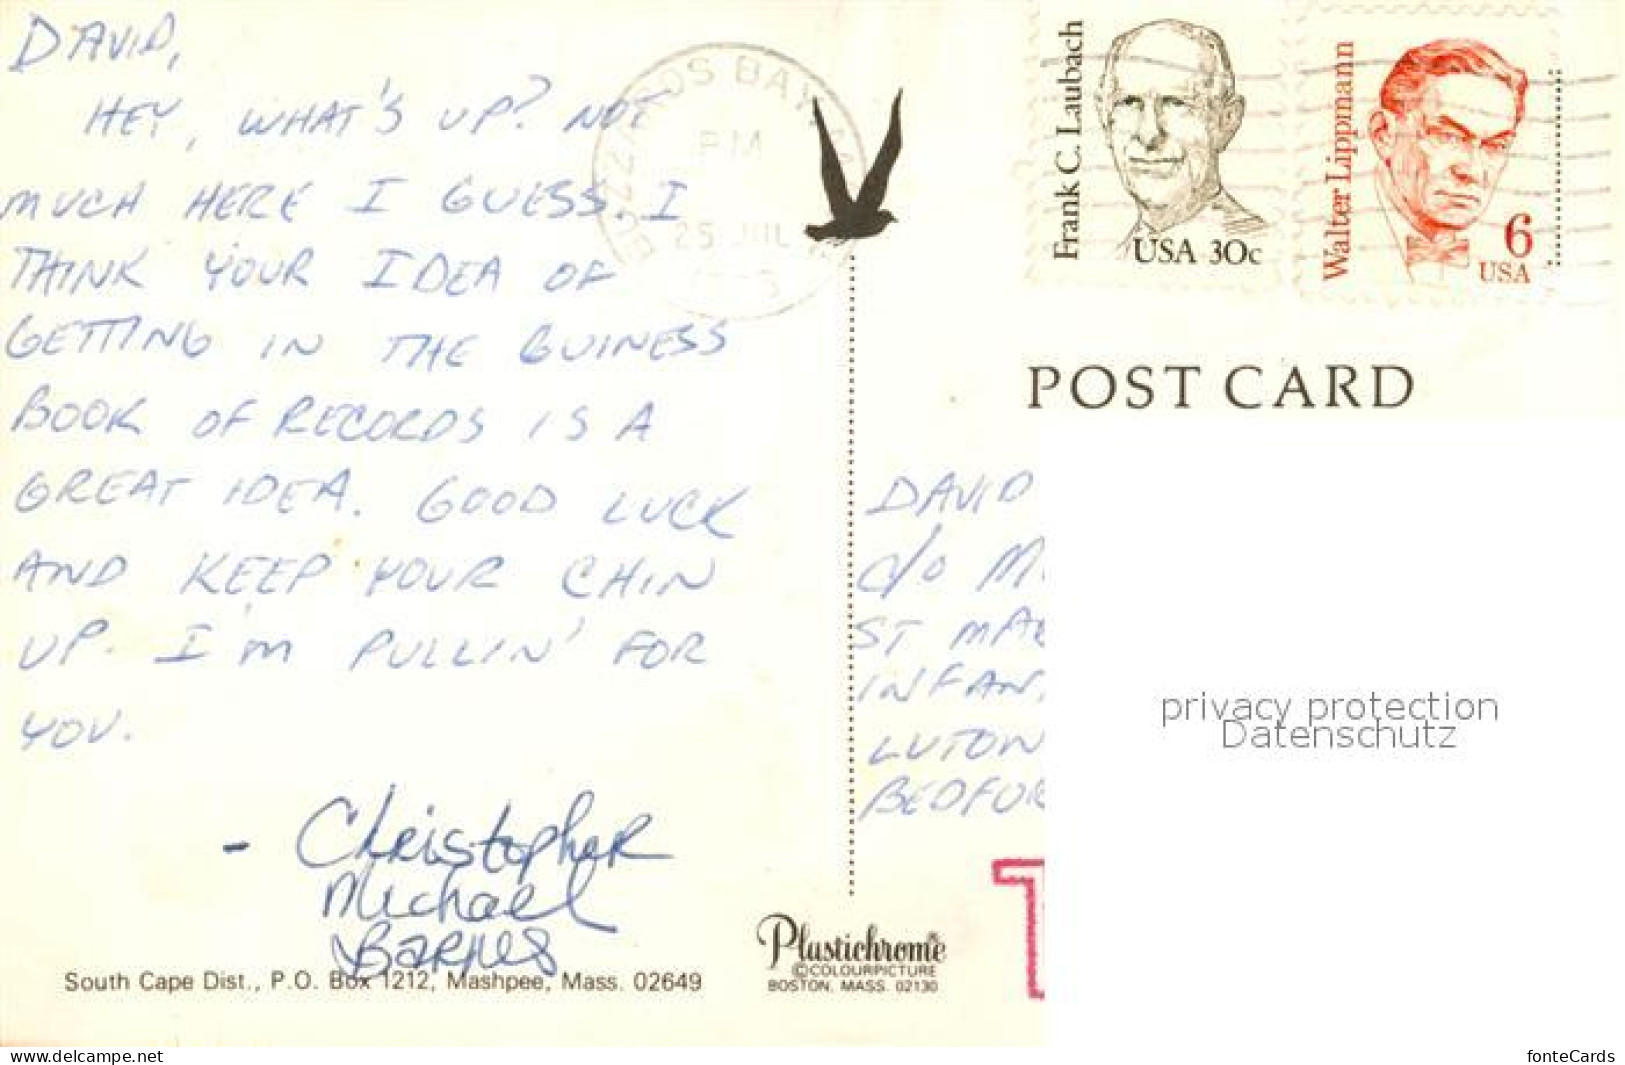 DAVID,
HEY, WHAT'S UP? NOT
MUCH HERE I GUESS. I
THINK YOUR IDEA OF
GETTING IN THE GUINESS
BOOK OF RECORDS IS A
GREAT IDEA. GOOD LUCK
AND KEEP YOUR CHIN
UP. I'M PULLIN' FOR
YOU.
- Christopher
Michael
Barnes
South Cape Dist., P.O. Box 1212, Mashpee, Mass. 02649
Plastichrome®
©COLOURPICTURE
BOSTON, MASS. 02130
BUZZARDS BAY, MA
PM
25 JUL
Frank C. Laubach
USA 30c
Walter Lippmann
6
USA
POST CARD
DAVID
C/O M
ST MAR
INFAN
LUTON
BEDFOR
T
privacy protection
Datenschutz
www.delcampe.net
fonteCards